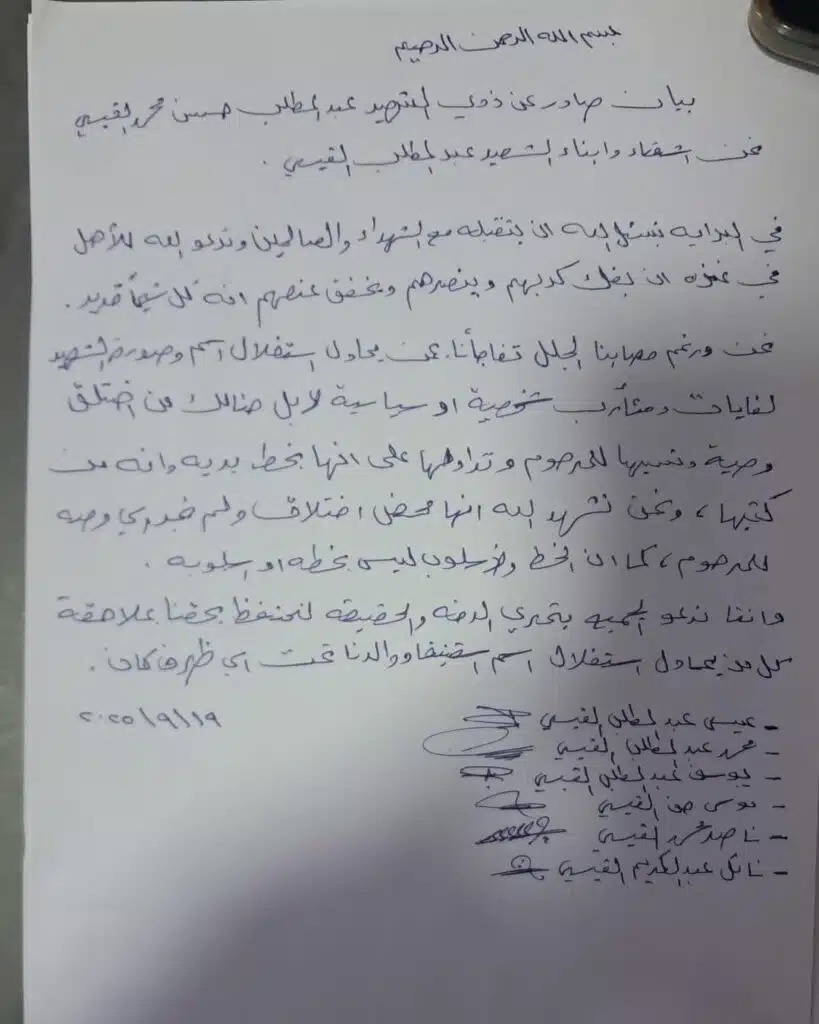 بسم الله الرحمن الرحيم
بيان صادر عن ذوي الشهيد عبد المطلب حسن محمد القيسي
نحن اشقاء وابناء الشهيد عبد المطلب القيسي .
في البدايه نسئل الله ان يتقبله مع الشهداء والصالحين وندعو الله للأهل
في غزه ان يفك كربهم وينصرهم ويخفف عنهم انه كل شيئاً قدير .
نحن ورغم مصابنا الجلل تفاجأنا بمن يحاول استغلال اسم وصورة الشهيد
لغايات ومئآرب شخصية او سياسية لا بل هنالك من اختلق
وصية ونسبها للمرحوم وتداولها على انها بخط يديه وانه من
كتبها ، ونحن نشهد الله انها محض اختلاق ولم نجد اي وصيه
للمرحوم ، كما ان الخط والاسلوب ليس بخطه او اسلوبه .
واننا ندعو الجميع بتحري الدقه والحقيقه لنحتفظ بحقنا بملاحقة
كل من يحاول استغلال اسم شقيقنا ووالدنا تحت اي ظرف كان .
- عيسى عبد المطلب القيسي ٢٠٢٥/٩/١٩
- محمد عبد المطلب القيسي
- يوسف عبد المطلب القيسي
- موسى القيسي
- ناصر محمد القيسي
- نائل عبد الكريم القيسي